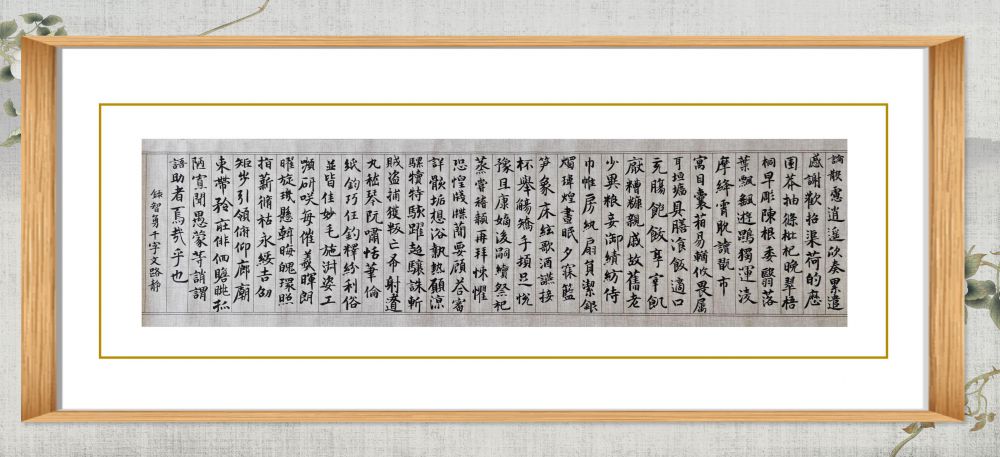 論散慮逍遙欣奏累遣
慼謝歡招渠荷的歷
園莽抽條枇杷晚翠梧
桐早彫陳根委翳落
葉飄飖遊鵾獨運凌
摩絳霄耽讀翫市
寓目囊箱易輶攸畏属
耳垣墻具膳飡飯適口
充腸飽飫享宰飢
厭糟糠親戚故舊老
少異粮妾御績紡侍
巾帷房紈扇員潔銀
燭瑋煌晝眠夕寐籃
笋象床絃歌酒讌接
杯舉觴矯手頓足悅
豫且康嫡後嗣續祭祀
蒸嘗稽顙再拜悚懼
恐惶牋牒簡要顧答審
詳骸垢想浴執熱願涼
騾犢特駭躍超驤誅斬
賊盜捕獲叛亡布射遼
丸嵇琴阮嘯恬筆倫
紙鈞巧任釣釋紛利俗
並皆佳妙毛施淑姿工
嚬研咲每催羲暉朗
曜旋璣懸斡晦魄環照
指薪脩祜永綏吉劭
矩步引領俯仰廊廟
束帶矜莊徘徊瞻眺孤
陋寡聞愚蒙等誚謂
語助者焉哉乎也
錄智千字文路靜